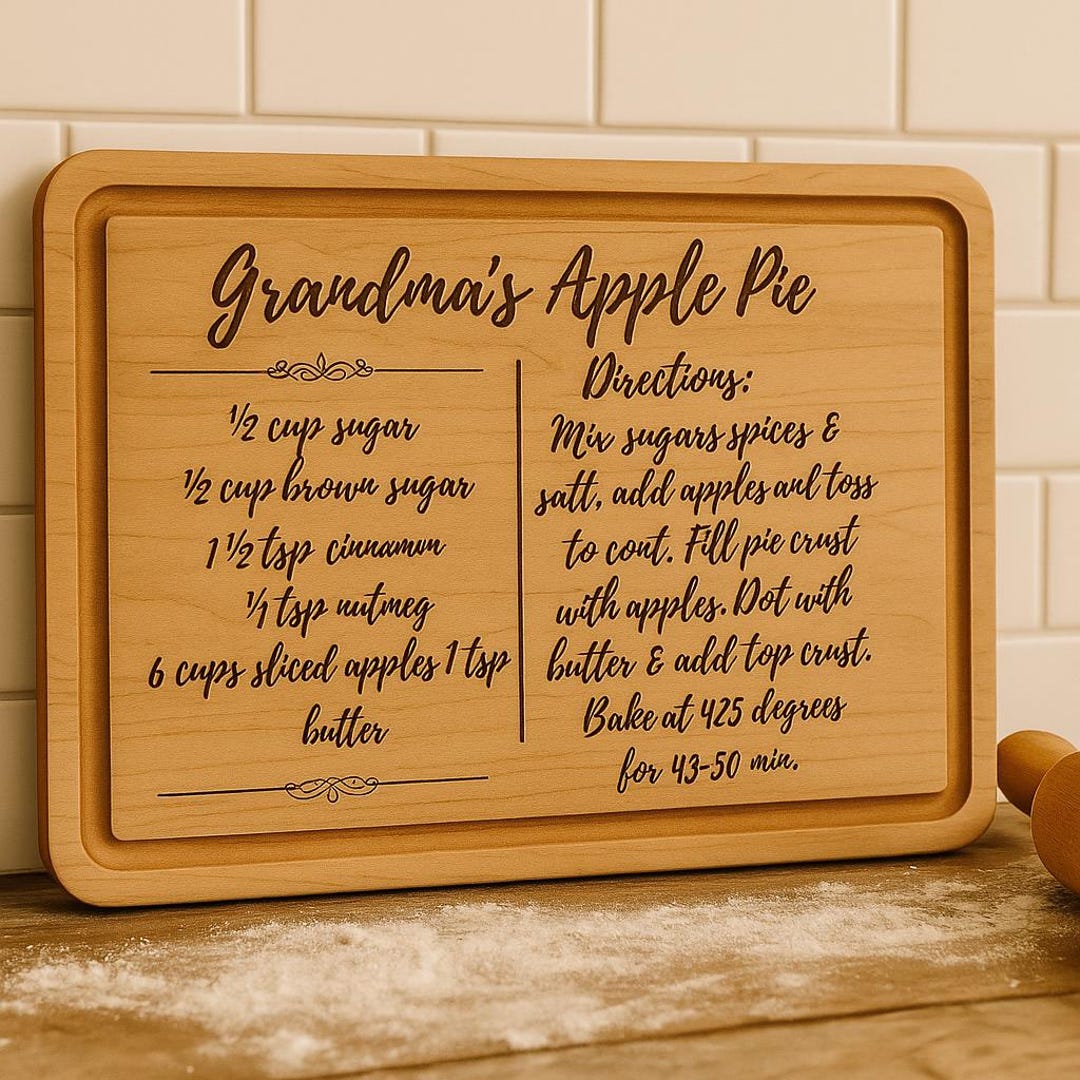 Grandma's Apple Pie
½ cup sugar
½ cup brown sugar
1 ½ tsp cinnamon
⅟1 tsp nutmeg
6 cups sliced apples 1 tsp
butter
Directions:
Mix sugars spices &
satt, add apples and toss
to cont. Fill pie crust
with apples. Dot with
butter & add top crust.
Bake at 425 degrees
for 43-50 min.